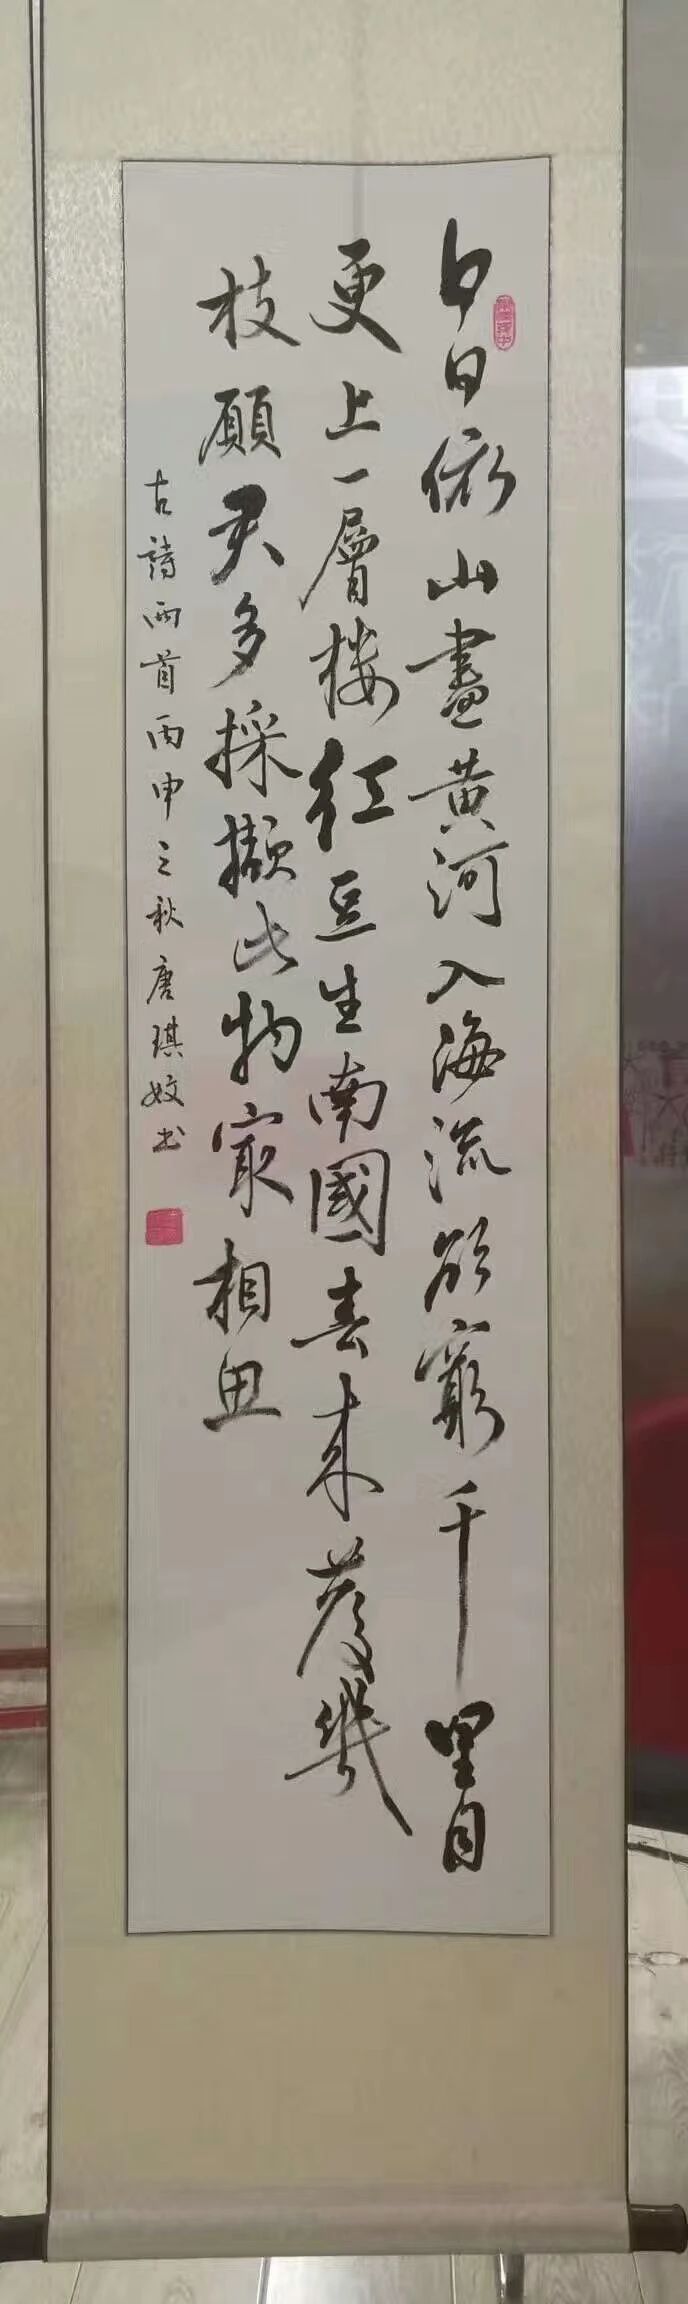 白日依山盡黄河入海流欲窮千里目
更上一層楼红豆生南國春来發幾
枝願君多採擷此物最相思
古詩两首丙申之秋唐琪姣书